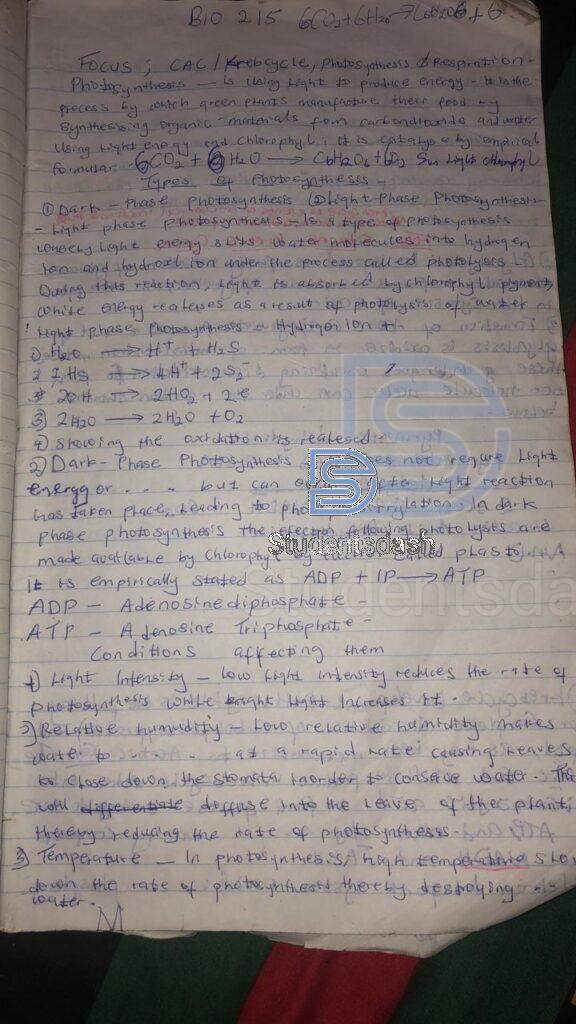 BIO 215 6CO2+6H2O→C6H12O6+6
Focus; CAC/Krebcycle, Photosynthesis & Respiration -
Photosynthesis — is Using Light to produce energy - It is the
process by which green plants manufacture their food by
Synthesising organic-materials from carbondioxide and water
Using Light energy and chlorophyl; it is catalyse by empirical
formular 6CO2 + 6H2O → C6H12O6 + 6O2 Sun Light Chlorophyl
Types of Photosynthesis -
① Dark-Phase Photosynthesis ② Light-Phase Photosynthesis -
- Light phase photosynthesis - Is a type of photosynthesis
whereby Light energy slits water molecules into hydrogen
Ion and hydroxil Ion under the process called photolysis
During this reaction, Light is absorbed by chlorophyl pigment,
while energy realeases as a result of photolysis of water in
Light phase Photosynthesis - Hydrogen Ion +
1) H2O → H+ + H2S
2 2HS → 4H + 2S2
3 2OH → 2HO2 + 2e
3) 2H2O → 2H2O + O2
4) Showing the oxidation is realesed
2) Dark-Phase Photosynthesis does not require Light
energy or . . . . but can after Light reaction
has taken place, Leading to In dark
phase photosynthesis the electron following photolysis are
made available by chlorophyl
It is empirically stated as ADP + IP → ATP
ADP - Adenosine diphosphate -
ATP - Adenosine Triphosphate -
Conditions affecting them
1) Light Intensity - Low Light intensity reduces the rate of
photosynthesis while bright Light Increases it.
2) Relative humidity - Low relative humidity makes
water to . . . at a rapid rate causing Leaves
to close down the stomata inorder to conserve water. This
will differentiate deffuse into the Leave of the plant
thereby reducing the rate of photosynthesis -
3) Temperature - In photosynthesis, high temperature slow
down the rate of photosynthesis thereby destroying
water.
M
Studentsdash